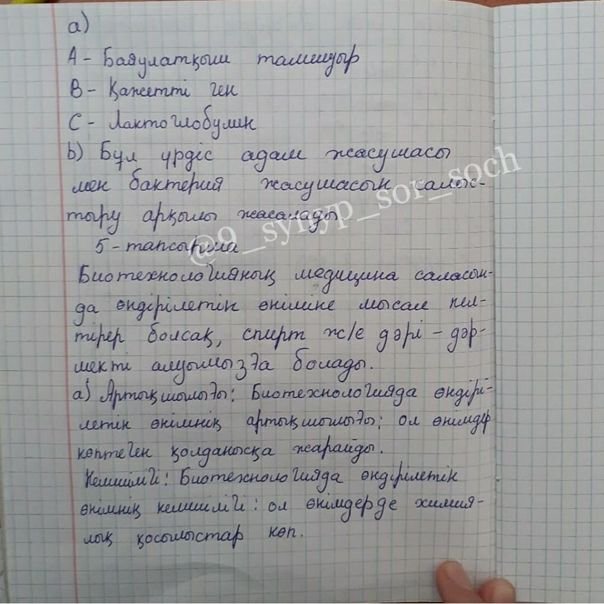 а)
А - Баяулатқыш тамшыдыр
В - Қажетті ген
С - Лактоглобулин
b) Бұл үрдіс адам жасушасы
мен бактерия жасушасын салыс-
тыру арқылы жасалады
5 - тапсырма
Биотехнологияның медицина саласын-
да өндірілетін өніміне мысал кел-
тірер болсақ, спирт ж/е дәрі - дәр-
мекті алуымызға болады.
а) Артықшылығы: Биотехнологияда өндірі-
летін өнімнің артықшылығы: ол өнімдер
көптеген қолданысқа жарайды.
Кемшілігі: Биотехнологияда өндірілетін
өнімнің кемшілігі: ол өнімдерде химия-
лық қосылыстар көп.
@9_synyp_sor_soch